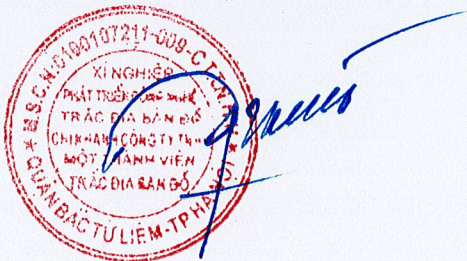 M.S.C.N:0100107211-009-C.T.T.N.H.H
XÍ NGHIỆP
PHÁT TRIỂN CÔNG NGHỆ
TRẮC ĐỊA BẢN ĐỒ
CHI NHÁNH CÔNG TY TNHH
MỘT THÀNH VIÊN
TRẮC ĐỊA BẢN ĐỒ
QUẬN BẮC TỪ LIÊM-TP HÀ NỘI